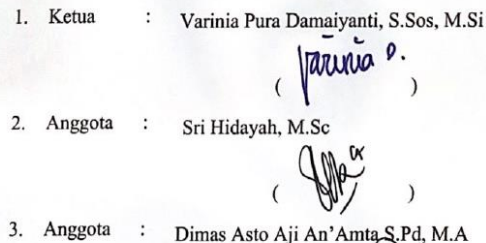 1. Ketua : Varinia Pura Damaiyanti, S.Sos, M.Si
( Varinia D. )
2. Anggota : Sri Hidayah, M.Sc
( )
3. Anggota : Dimas Asto Aji An'Amta S.Pd, M.A